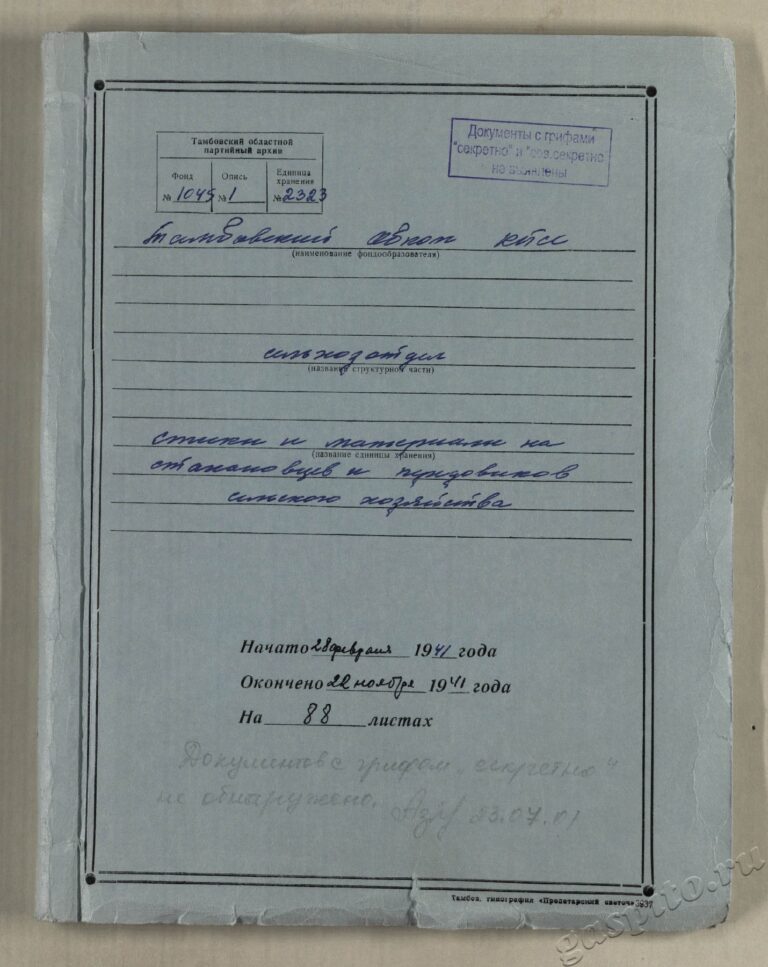 Тамбовский областной
партийный архив
Фонд Опись Единица хранения
№ 1045 № 1 № 2323
Документы с грифами
"секретно" и "сов.секретно
не выявлены
Тамбовский обком КПСС
(наименование фондообразователя)
сельхозотдел
(название структурной части)
списки и материалы на
(название единицы хранения)
стахановцев и передовиков
сельского хозяйства
Начато 28 февраля 1941 года
Окончено 22 ноября 1941 года
На 88 листах
Документов с грифом „секретно"
не обнаружено. 23.07.01
Тамбов, типография «Пролетарский светоч» 3937
gaspito.ru